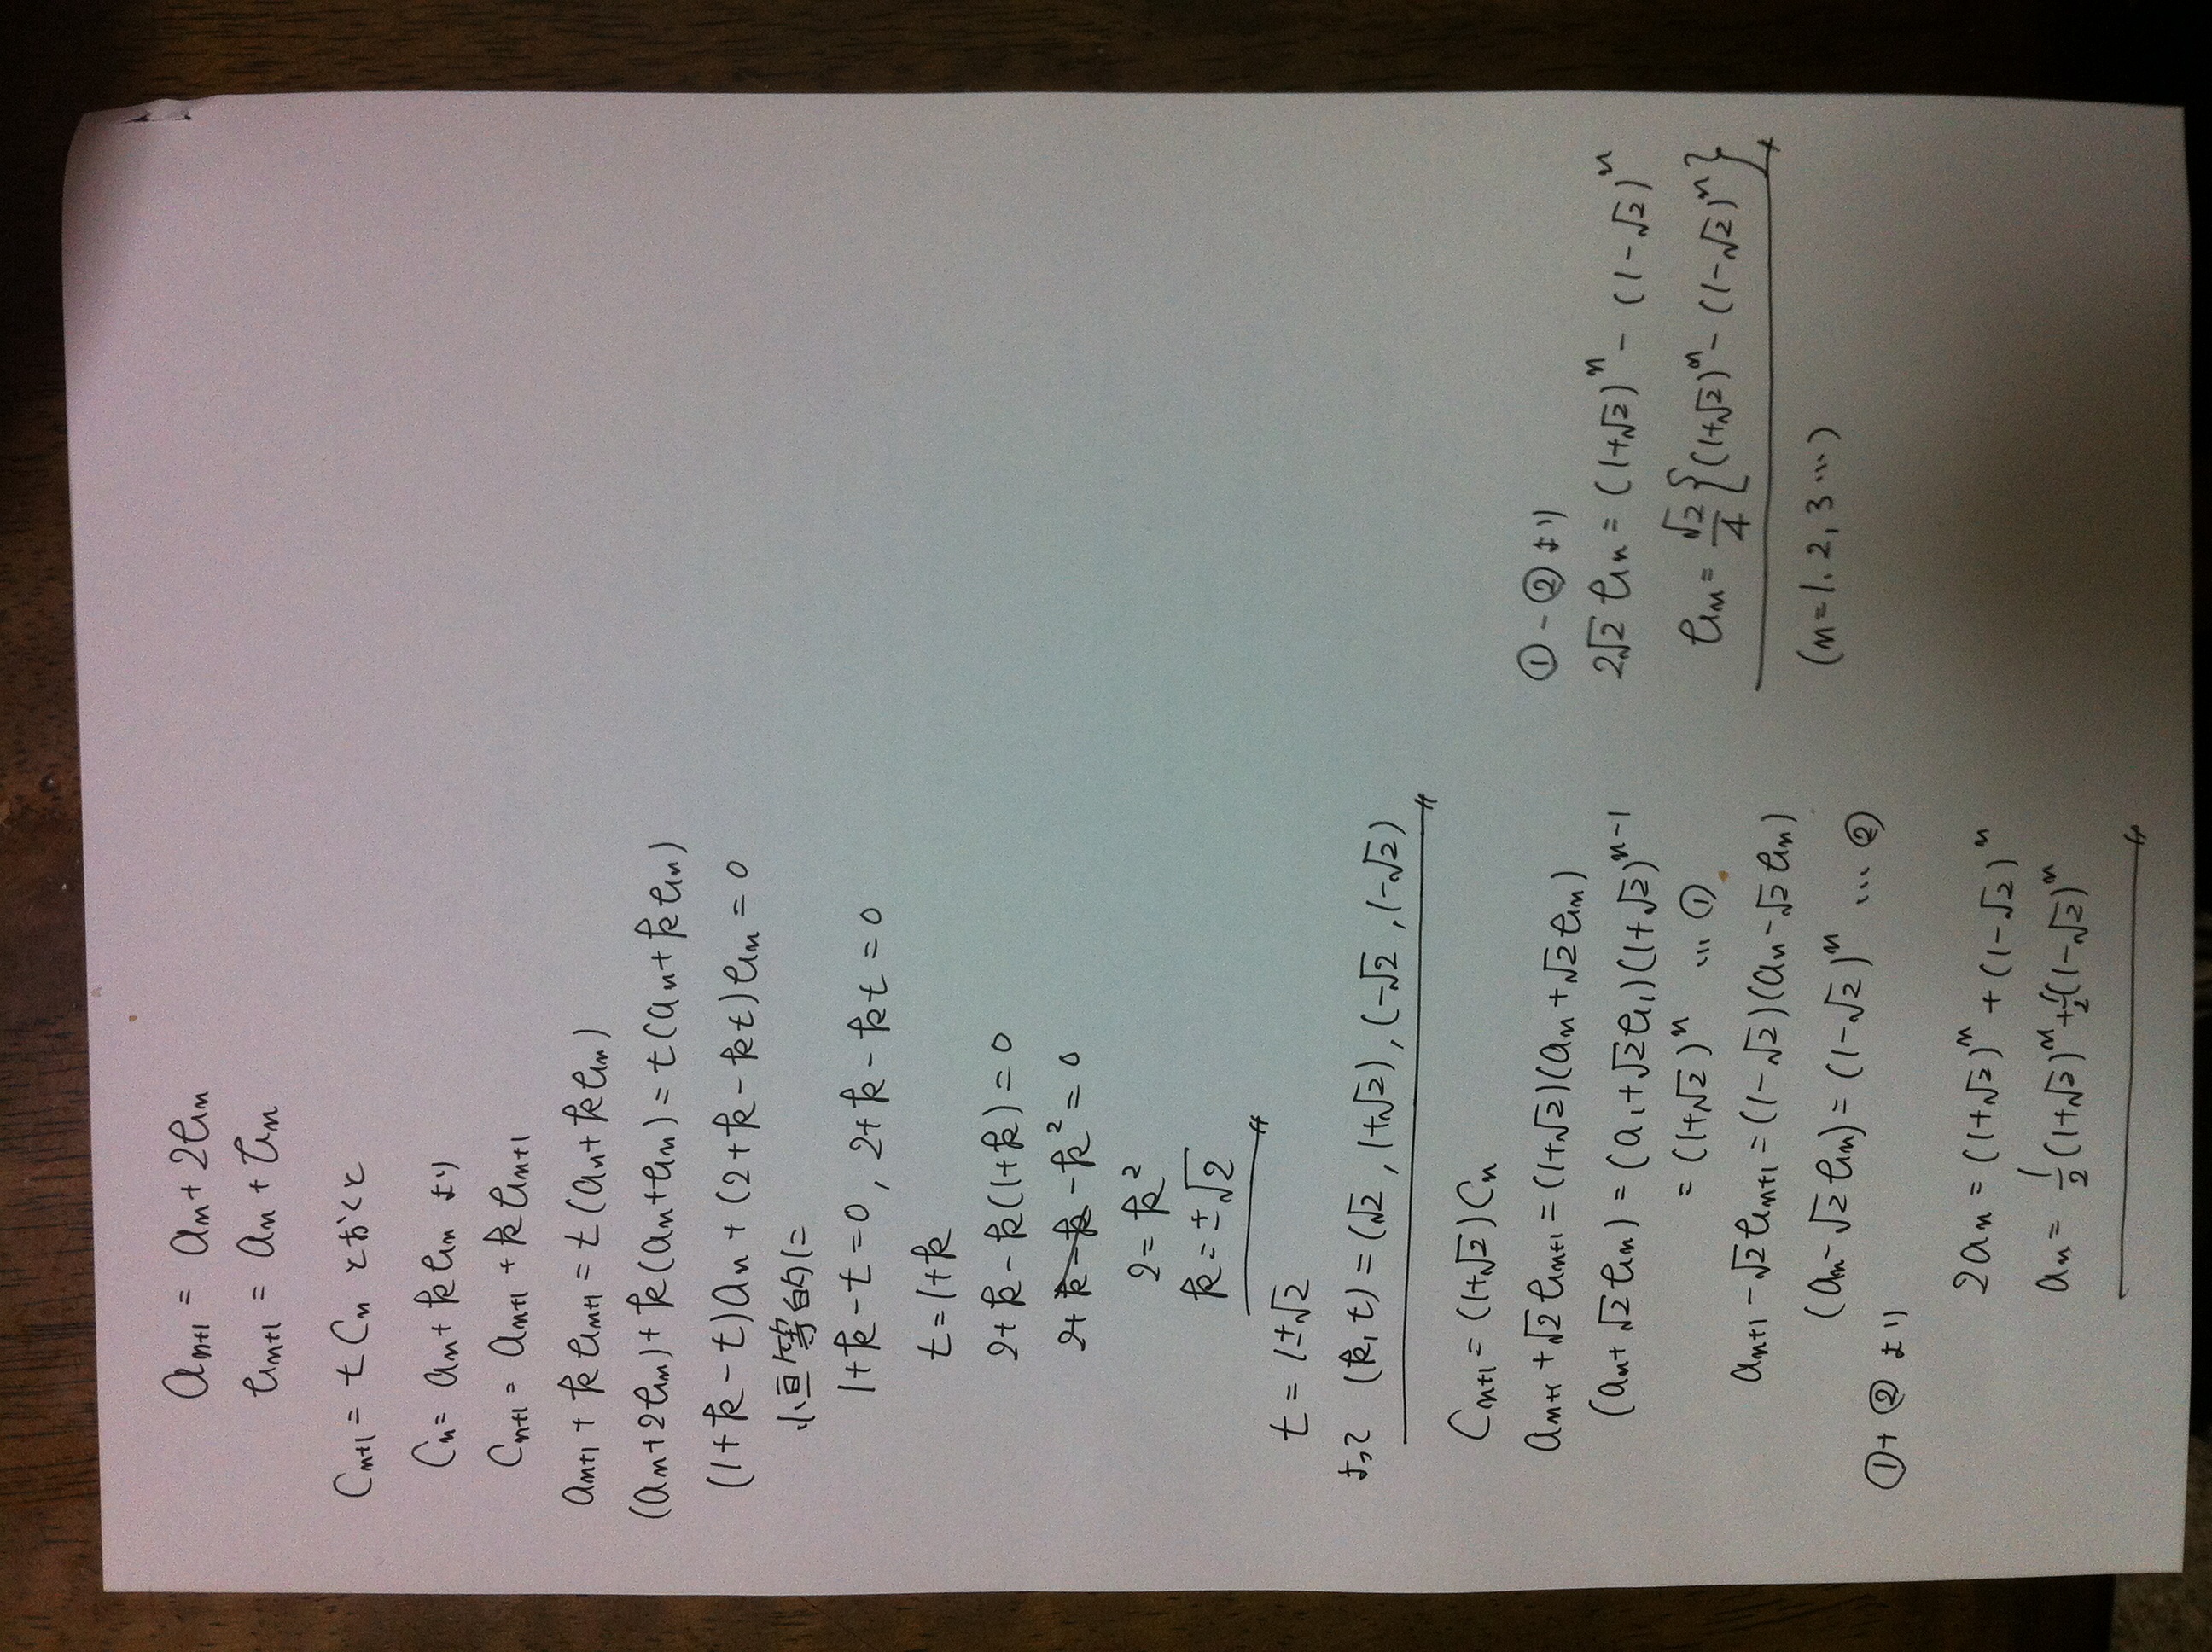 aₙ₊₁ = aₙ + 2bₙ
bₙ₊₁ = aₙ + bₙ
Cₙ₊₁ = t Cₙ とおくと
Cₙ = aₙ + k bₙ より
Cₙ₊₁ = aₙ₊₁ + k bₙ₊₁
aₙ₊₁ + k bₙ₊₁ = t (aₙ + k bₙ)
(aₙ + 2bₙ) + k (aₙ + bₙ) = t (aₙ + k bₙ)
(1 + k - t) aₙ + (2 + k - kt) bₙ = 0
恒等的に
1 + k - t = 0 , 2 + k - kt = 0
t = 1 + k
2 + k - k(1 + k) = 0
2 + k - k - k² = 0
2 = k²
k = ±√2
t = 1 ± √2
よって (k, t) = (√2 , 1+√2) , (-√2 , 1-√2)
Cₙ₊₁ = (1+√2) Cₙ
aₙ₊₁ + √2 bₙ₊₁ = (1+√2)(aₙ + √2 bₙ)
(aₙ + √2 bₙ) = (a₁ + √2 b₁)(1+√2)ⁿ⁻¹
= (1+√2)ⁿ … ①
aₙ₊₁ - √2 bₙ₊₁ = (1-√2)(aₙ - √2 bₙ)
(aₙ - √2 bₙ) = (1-√2)ⁿ … ②
① + ② より
2aₙ = (1+√2)ⁿ + (1-√2)ⁿ
aₙ = 1/2 (1+√2)ⁿ + 1/2 (1-√2)ⁿ
① - ② より
2√2 bₙ = (1+√2)ⁿ - (1-√2)ⁿ
bₙ = √2/4 {(1+√2)ⁿ - (1-√2)ⁿ}
(n = 1, 2, 3 …)